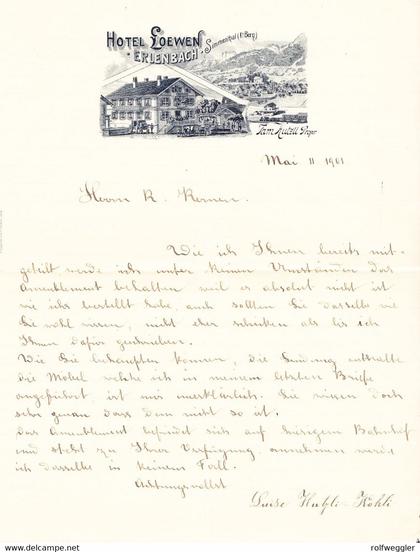 HOTEL LOEWEN
ERLENBACH
Simmenthal (Kt. Bern)
Mai 11 1901
Herrn K. Kernen.
Wie ich Ihnen bereits mit-
geteilt werde ich unter keinen Umständen das
Amenblement behalten weil es absolut nicht ist
wie ichs bestellt habe, auch sollten Sie dasselbe wie
Sie wohl wissen, nicht eher schicken als bis ich
Ihnen dafür geschrieben.
Wie Sie behaupten können, die Sendung enthalte
die Möbel welche ich in meinem letzten Briefe
angeführt, ist mir unerklärlich. Sie wissen doch
sehr genau dass dem nicht so ist.
Das Amenblement befindet sich auf hiesigem Bahnhof
und steht zu Ihrer Verfügung, annehmen werde
ich dasselbe in keinem Fall.
Achtungsvollst
Luise Hutzli-Kohli
www.delcampe.net
rolfweggler